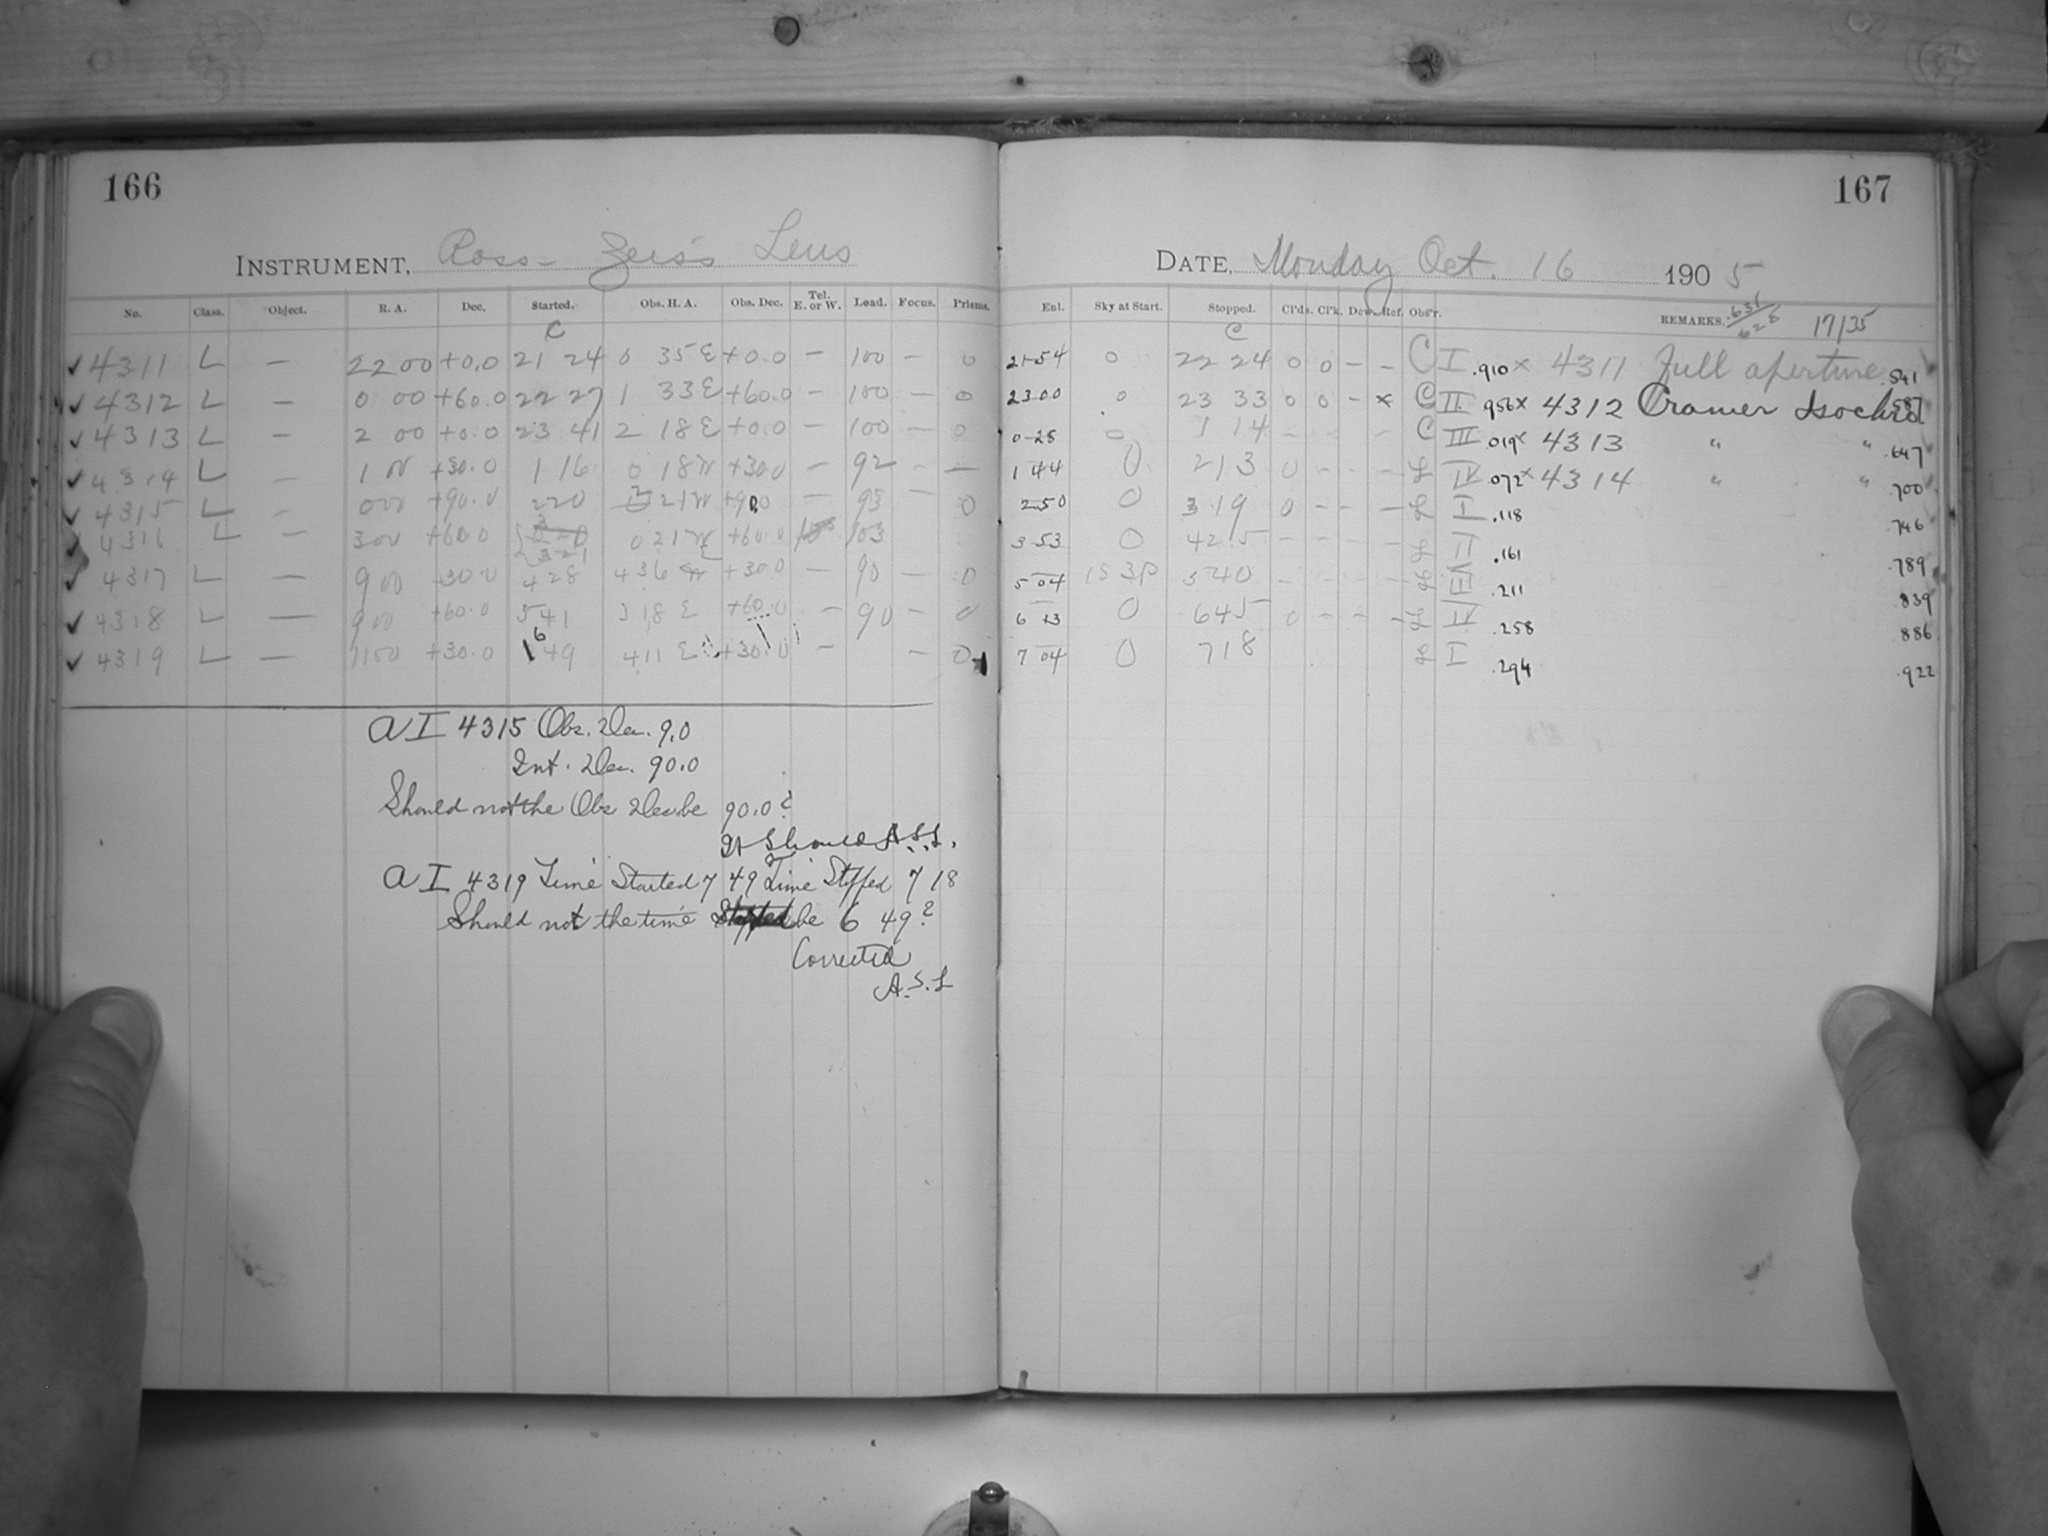 166
INSTRUMENT, Ross-Zeiss Lens
No. Class. Object. R. A. Dec. Started. Obs. H. A. Obs. Dec. Tel. E. or W. Load. Focus. Prisms.
C
✓ 4311 L — 22 00 +0.0 21 24 0 35 E +0.0 — 100 — 0
✓ 4312 L — 0 00 +60.0 22 27 1 33 E +60.0 — 100 — 0
✓ 4313 L — 2 00 +0.0 23 41 2 18 E +0.0 — 100 — 0
✓ 4314 L — 1 00 +30.0 1 16 0 18 W +30.0 — 92 — —
✓ 4315 L — 0 00 +90.0 2 20 21 W +90.0 — 95 — 0
✓ 4316 L — 3 00 +60.0 3 21 0 21 W +60.0 103
✓ 4317 L — 9 00 +30.0 4 28 4 36 E +30.0 — 90 — 0
✓ 4318 L — 9 00 +60.0 5 41 3 18 E +60.0 — 90 — 0
✓ 4319 L — 11 00 +30.0 6 49 4 11 E +30.0 — — 0
A I 4315 Obs. Dec. 9.0
Int. Dec. 90.0
Should not the Obs Dec. be 90.0?
It should A.S.L.
A I 4319 Time Started 7 49 Time Stopped 7 18
Should not the time be 6 49?
Corrected
A.S.L
167
DATE, Monday Oct. 16 1905
Enl. Sky at Start. Stopped. Cl'ds. Cl'k. Dew. Ref. Obs'r. REMARKS. 17/35
C
21 54 0 22 24 0 0 — — C I .910 × 4311 Full aperture .541
23 00 0 23 33 0 0 — × C II .956 × 4312 Cramer Isochro .587
0 28 0 1 14 — — — C III .019 × 4313 " " .647
1 44 0 2 13 0 — — — L IV .072 × 4314 " " .700
2 50 0 3 19 0 — — — L I .118 .746
3 53 0 4 25 — — — — L II .161 .789
5 04 1S 3P 5 40 — — — — L III .211 .839
6 13 0 6 45 0 — — — L IV .258 .886
7 04 0 7 18 L I .294 .922